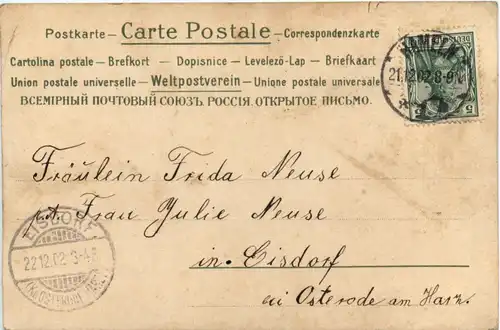 Postkarte - Carte Postale - Correspondenzkarte
Cartolina postale - Brefkort - Dopisnice - Levelező-Lap - Briefkaart
Union postale universelle - Weltpostverein - Unione postale universale
ВСЕМІРНЫЙ ПОЧТОВЫЙ СОЮЗЪ. РОССІЯ. ОТКРЫТОЕ ПИСЬМО.
21.12.02.8-9
5 5
Fräulein Frida Neuse
Frau Julie Neuse
in Eisdorf
Osterode am Harz.
EISDORF
22.12.02.3-4